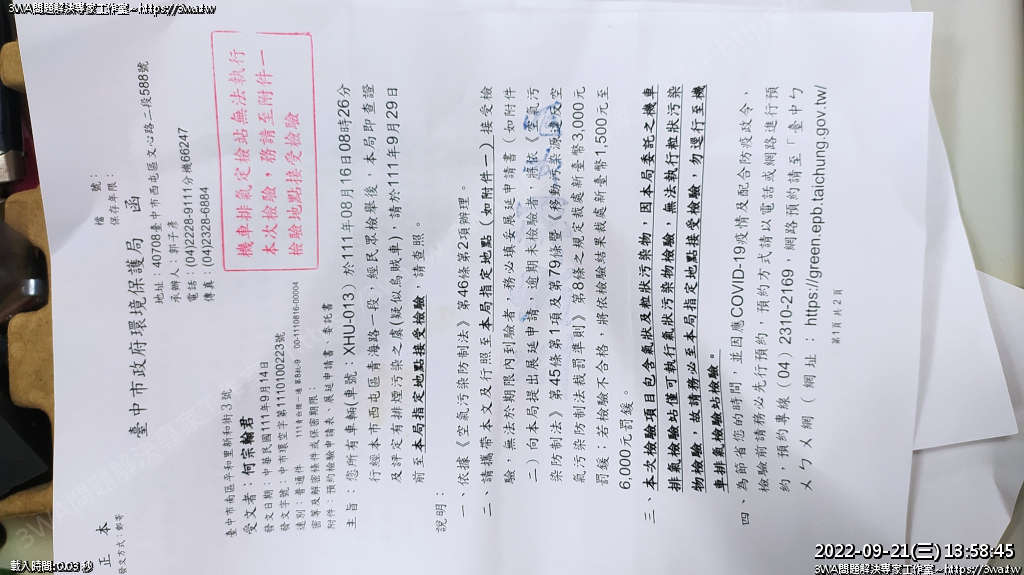 3WA問題解決專家工作室~https://3wa.tw
3WA問題解決專家工作室~https://3wa.tw
正本
發文方式：郵寄
檔　　號：
保存年限：
臺中市政府環境保護局　函
地址：40708臺中市西屯區文心路二段588號
承辦人：郭子彥
電話：(04)2228-9111分機66247
傳真：(04)2328-6884
機車排氣定檢站無法執行
本次檢驗，務請至附件一
檢驗地點接受檢驗
臺中市南區平和里新和街3號
受文者：何宗翰君
發文日期：中華民國111年9月14日
發文字號：中市環空字第1110100223號
速別：普通件
密等及解密條件或保密期限：
附件：預約檢驗申請表、展延申請書、委託書
主旨：您所有車輛(車號：XHU-013) 於111年08月16日08時26分
行經本市西屯區青海路一段，經民眾檢舉後，本局即查證
及評定有排煙污染之虞(疑似烏賊車)，請於111年9月29日
前至本局指定地點接受檢驗，請查照。
說明：
一、依據《空氣污染防制法》第46條第2項辦理。
二、請攜帶本文及行照至本局指定地點（如附件一）接受檢
驗，無法於期限內到驗者，務必填妥展延申請書（如附件
二）向本局提出展延申請，逾期未檢驗者，將依《空氣污
染防制法》第45條第1項及第79條暨《移動污染源違反空
氣污染防制法裁罰準則》第8條之規定裁處新臺幣3,000元
罰鍰；若檢驗不合格，將依檢驗結果裁處新臺幣1,500元至
6,000元罰鍰。
三、本次檢驗項目包含氣狀及粒狀污染物，因本局委託之機車
排氣檢驗站僅可執行氣狀污染物檢驗，無法執行粒狀污染
物檢驗，故請務必至本局指定地點接受檢驗，勿逕行至機
車排氣檢驗站檢驗。
四、為節省您的時間，並因應COVID-19疫情及配合防疫政令，
檢驗前請務必先行預約，預約方式請以電話或網路進行預
約，預約專線（04）2310-2169，網路預約請至「臺中ㄅ
ㄨㄅㄨ網（網址：https://green.epb.taichung.gov.tw/
第1頁 共2頁
載入時間：0.03 秒
2022-09-21(三) 13:58:45
3WA問題解決專家工作室~https://3wa.tw